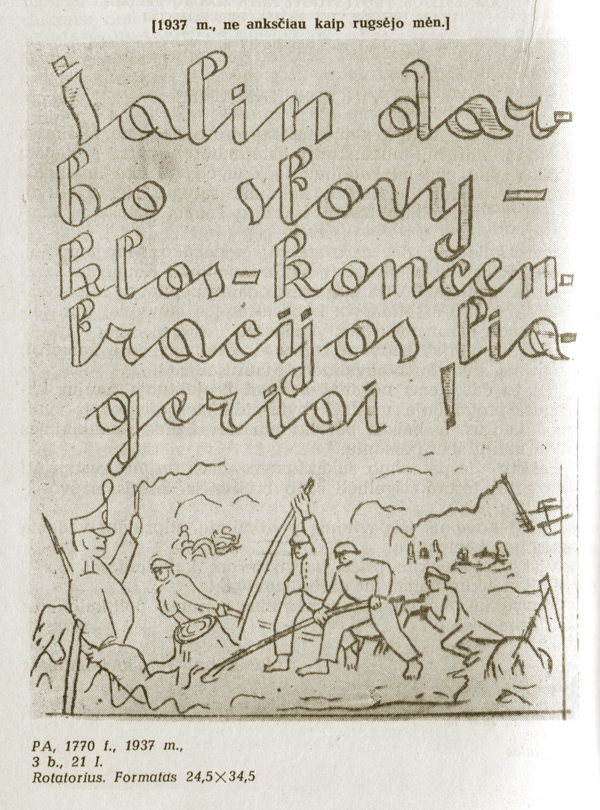 [1937 m., ne anksčiau kaip rugsėjo mėn.]
Šalin dar-
bo stovy-
klos-koncen-
tracijos lia-
geriai!
PA, 1770 f., 1937 m.,
3 b., 21 l.
Rotatorius. Formatas 24,5×34,5